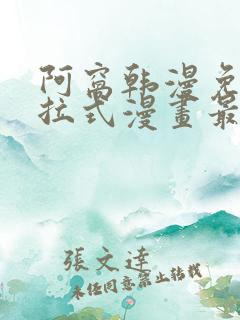 阿窩韩漫免
拉式漫畫最
張文達
未经同意禁止转载